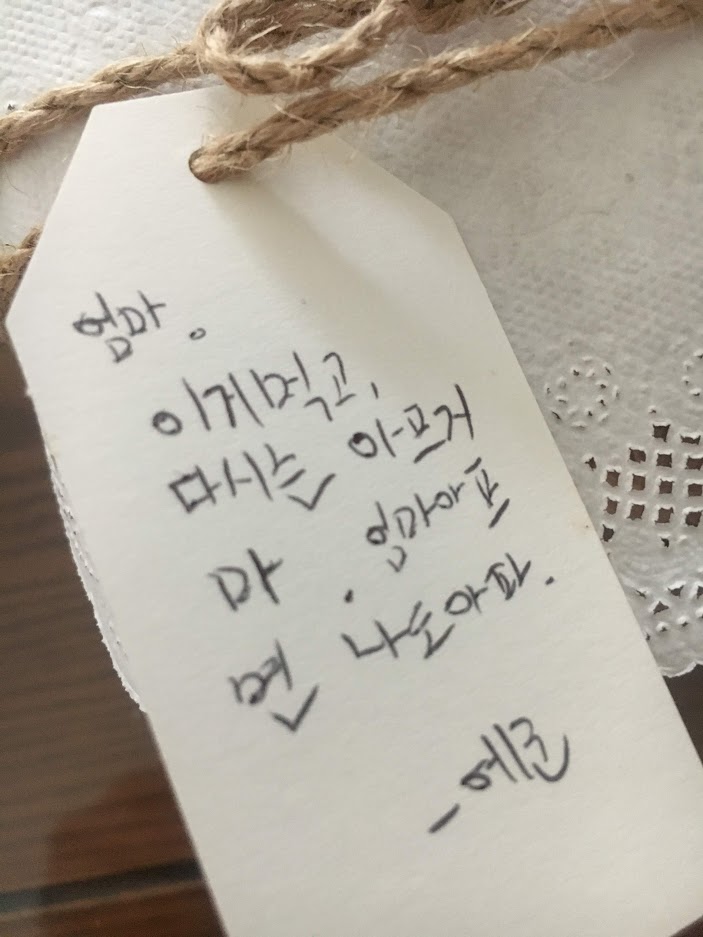 엄마.
이거먹고,
다시는 아프거
마. 엄마아프
면 나도아파.
-예린